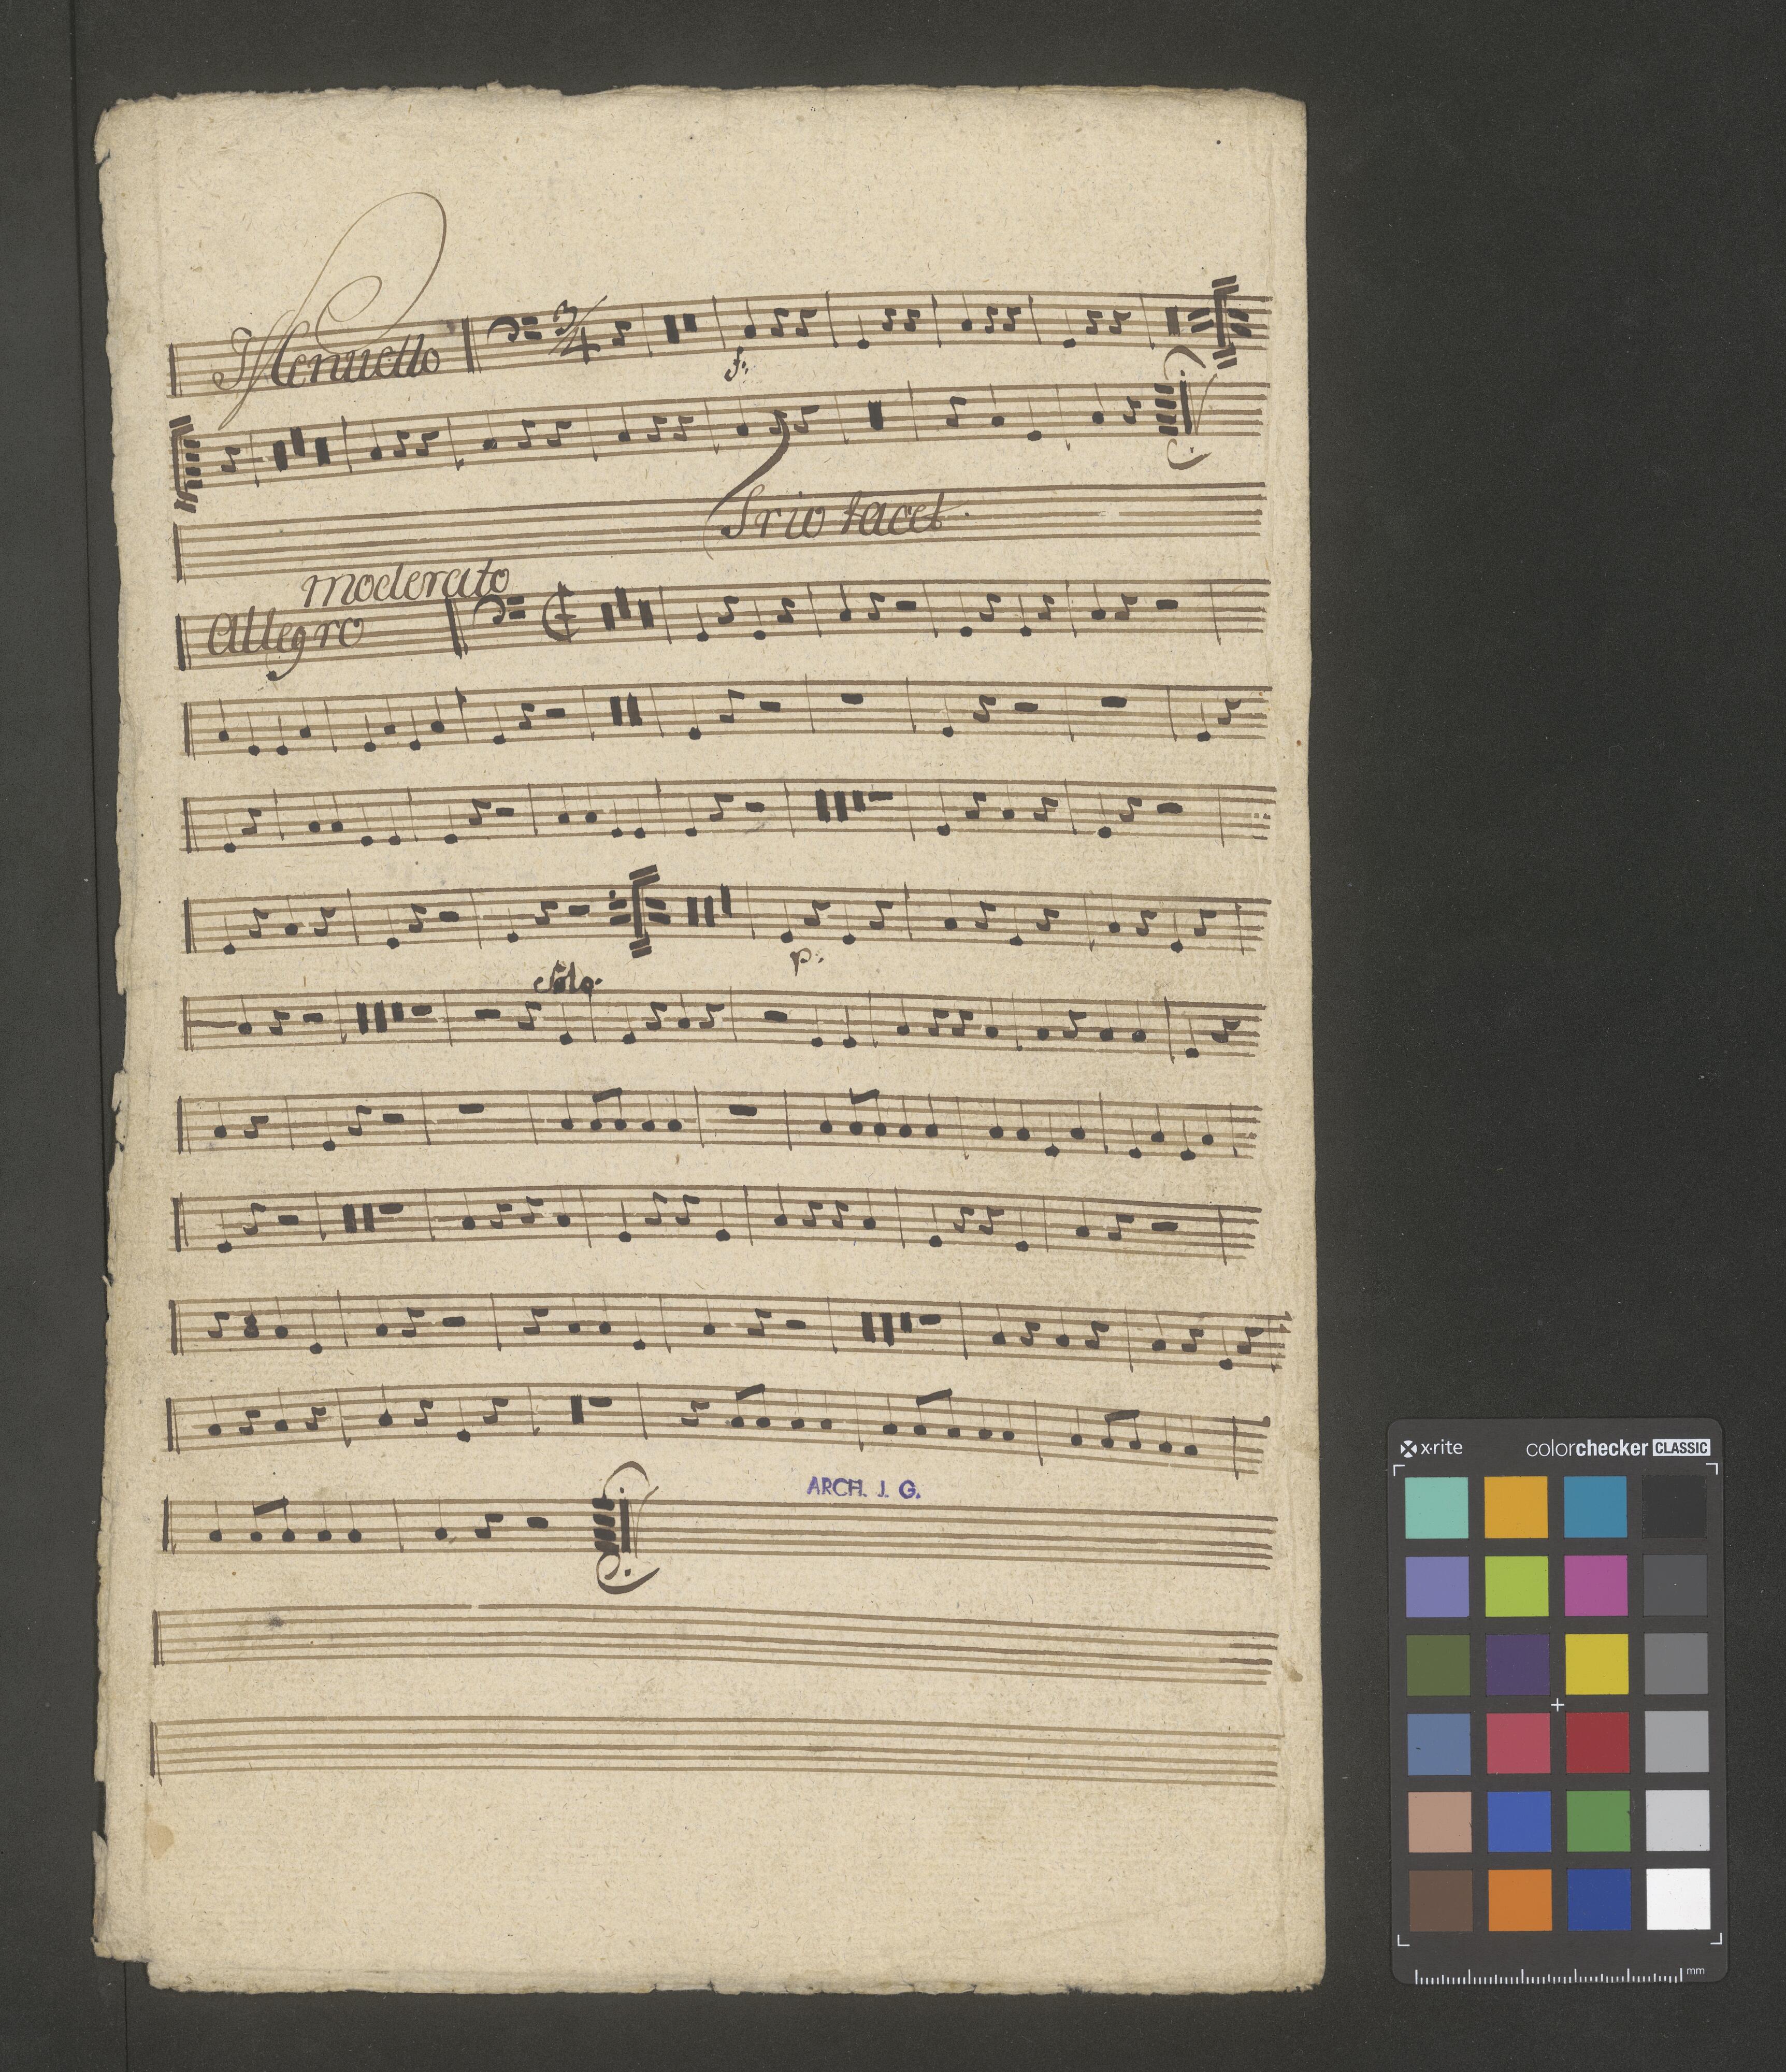 Menuetto 3/4
f:
Trio tacet.
moderato
Allegro
p:
Solo.
ARCH. J. G.
x·rite colorchecker CLASSIC
mm